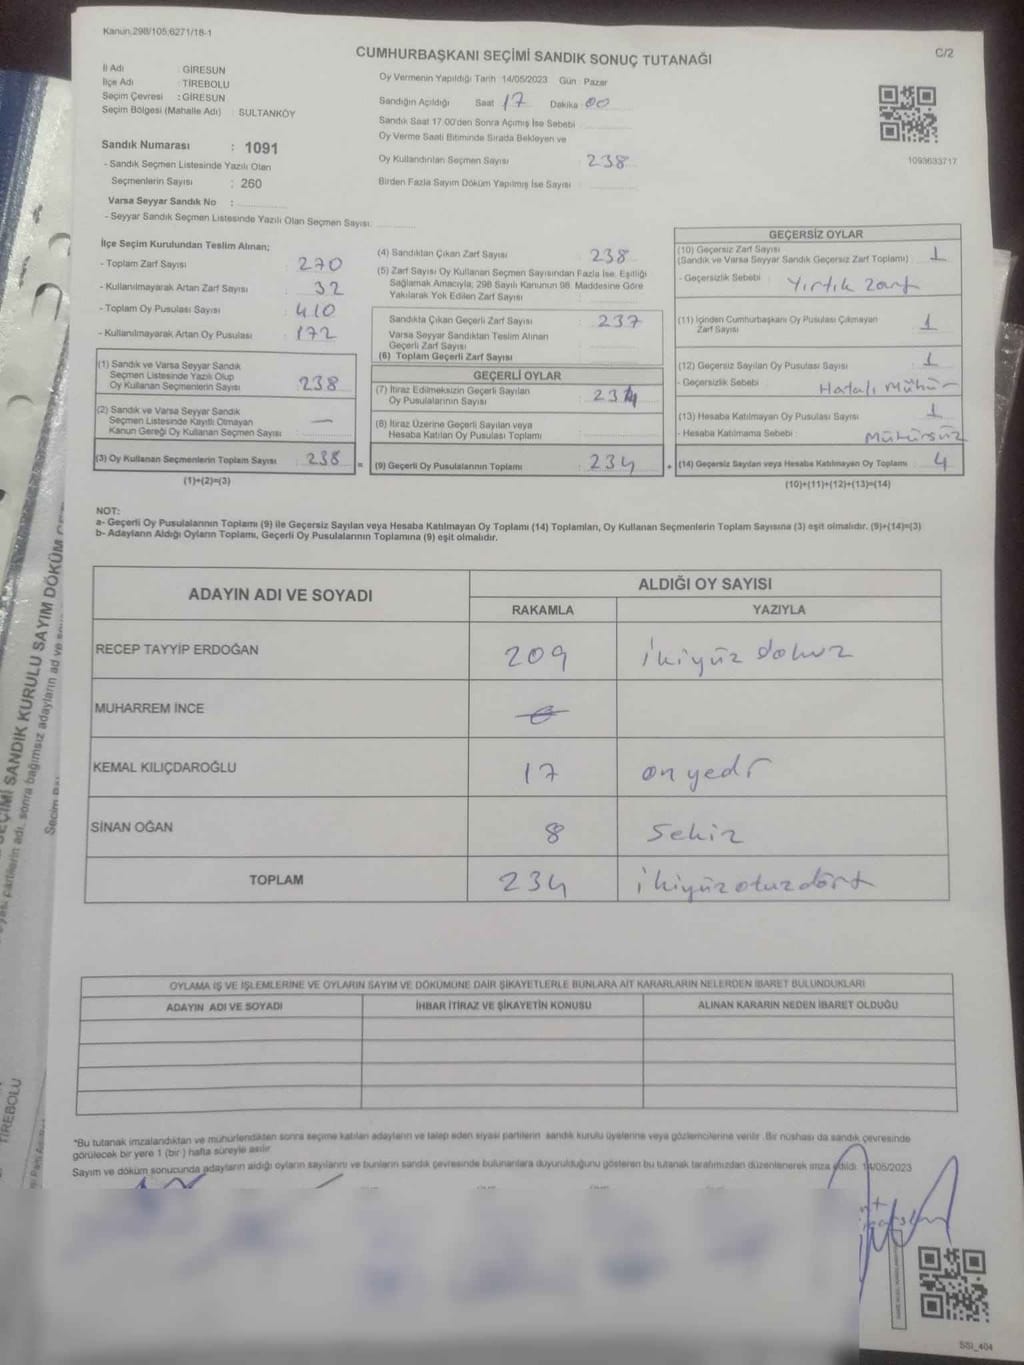 Kanun:298/105;6271/18-1
C/2
CUMHURBAŞKANI SEÇİMİ SANDIK SONUÇ TUTANAĞI
İl Adı : GİRESUN
İlçe Adı : TİREBOLU
Seçim Çevresi : GİRESUN
Seçim Bölgesi (Mahalle Adı) : SULTANKÖY
Sandık Numarası : 1091
- Sandık Seçmen Listesinde Yazılı Olan
Seçmenlerin Sayısı : 260
Varsa Seyyar Sandık No :
- Seyyar Sandık Seçmen Listesinde Yazılı Olan Seçmen Sayısı:
Oy Vermenin Yapıldığı Tarih :14/05/2023 Gün : Pazar
Sandığın Açıldığı Saat 17 Dakika 00
Sandık Saat 17:00'den Sonra Açımış İse Sebebi
Oy Verme Saati Bitiminde Sırada Bekleyen ve
Oy Kullandırılan Seçmen Sayısı : 238
Birden Fazla Sayım Döküm Yapılmış İse Sayısı :
1093633717
İlçe Seçim Kurulundan Teslim Alınan;
- Toplam Zarf Sayısı : 270
- Kullanılmayarak Artan Zarf Sayısı : 32
- Toplam Oy Pusulası Sayısı : 410
- Kullanılmayarak Artan Oy Pusulası : 172
(1) Sandık ve Varsa Seyyar Sandık
Seçmen Listesinde Yazılı Olup
Oy Kullanan Seçmenlerin Sayısı : 238
(2) Sandık ve Varsa Seyyar Sandık
Seçmen Listesinde Kayıtlı Olmayan
Kanun Gereği Oy Kullanan Seçmen Sayısı : —
(3) Oy Kullanan Seçmenlerin Toplam Sayısı : 238
(1)+(2)=(3)
(4) Sandıktan Çıkan Zarf Sayısı : 238
(5) Zarf Sayısı Oy Kullanan Seçmen Sayısından Fazla İse, Eşitliği
Sağlamak Amacıyla; 298 Sayılı Kanunun 98. Maddesine Göre
Yakılarak Yok Edilen Zarf Sayısı :
Sandıkta Çıkan Geçerli Zarf Sayısı : 237
Varsa Seyyar Sandıktan Teslim Alınan
Geçerli Zarf Sayısı
(6) Toplam Geçerli Zarf Sayısı
GEÇERLİ OYLAR
(7) İtiraz Edilmeksizin Geçerli Sayılan
Oy Pusulalarının Sayısı : 234
(8) İtiraz Üzerine Geçerli Sayılan veya
Hesaba Katılan Oy Pusulası Toplamı :
= (9) Geçerli Oy Pusulalarının Toplamı : 234 +
GEÇERSİZ OYLAR
(10) Geçersiz Zarf Sayısı
(Sandık ve Varsa Seyyar Sandık Geçersiz Zarf Toplamı) : 1
- Geçersizlik Sebebi : Yırtık Zarf
(11) İçinden Cumhurbaşkanı Oy Pusulası Çıkmayan
Zarf Sayısı : 1
(12) Geçersiz Sayılan Oy Pusulası Sayısı : 1
- Geçersizlik Sebebi : Hatalı Mühür
(13) Hesaba Katılmayan Oy Pusulası Sayısı : 1
- Hesaba Katılmama Sebebi : Mühürsüz
(14) Geçersiz Sayılan veya Hesaba Katılmayan Oy Toplamı : 4
(10)+(11)+(12)+(13)=(14)
NOT:
a- Geçerli Oy Pusulalarının Toplamı (9) ile Geçersiz Sayılan veya Hesaba Katılmayan Oy Toplamı (14) Toplamları, Oy Kullanan Seçmenlerin Toplam Sayısına (3) eşit olmalıdır. (9)+(14)=(3)
b- Adayların Aldığı Oyların Toplamı, Geçerli Oy Pusulalarının Toplamına (9) eşit olmalıdır.
ADAYIN ADI VE SOYADI
ALDIĞI OY SAYISI
RAKAMLA YAZIYLA
RECEP TAYYİP ERDOĞAN 209 ikiyüz dokuz
MUHARREM İNCE 0
KEMAL KILIÇDAROĞLU 17 onyedi
SİNAN OĞAN 8 sekiz
TOPLAM 234 ikiyüzotuzdört
OYLAMA İŞ VE İŞLEMLERİNE VE OYLARIN SAYIM VE DÖKÜMÜNE DAİR ŞİKAYETLERLE BUNLARA AİT KARARLARIN NELERDEN İBARET BULUNDUKLARI
ADAYIN ADI VE SOYADI İHBAR İTİRAZ VE ŞİKAYETİN KONUSU ALINAN KARARIN NEDEN İBARET OLDUĞU
*Bu tutanak imzalandıktan ve mühürlendikten sonra seçime katılan adayların ve talep eden siyasi partilerin sandık kurulu üyelerine veya gözlemcilerine verilir. Bir nüshası da sandık çevresinde
görülecek bir yere 1 (bir) hafta süreyle asılır.
Sayım ve döküm sonucunda adayların aldığı oyların sayılarını ve bunların sandık çevresinde bulunanlara duyurulduğunu gösteren bu tutanak tarafımızdan düzenlenerek imza edildi. 14/05/2023
SSİ_404
SEÇİMİ SANDIK KURULU SAYIM DÖKÜM
partilerin adı, sonra bağımsız adayların ad ve
TİREBOLU